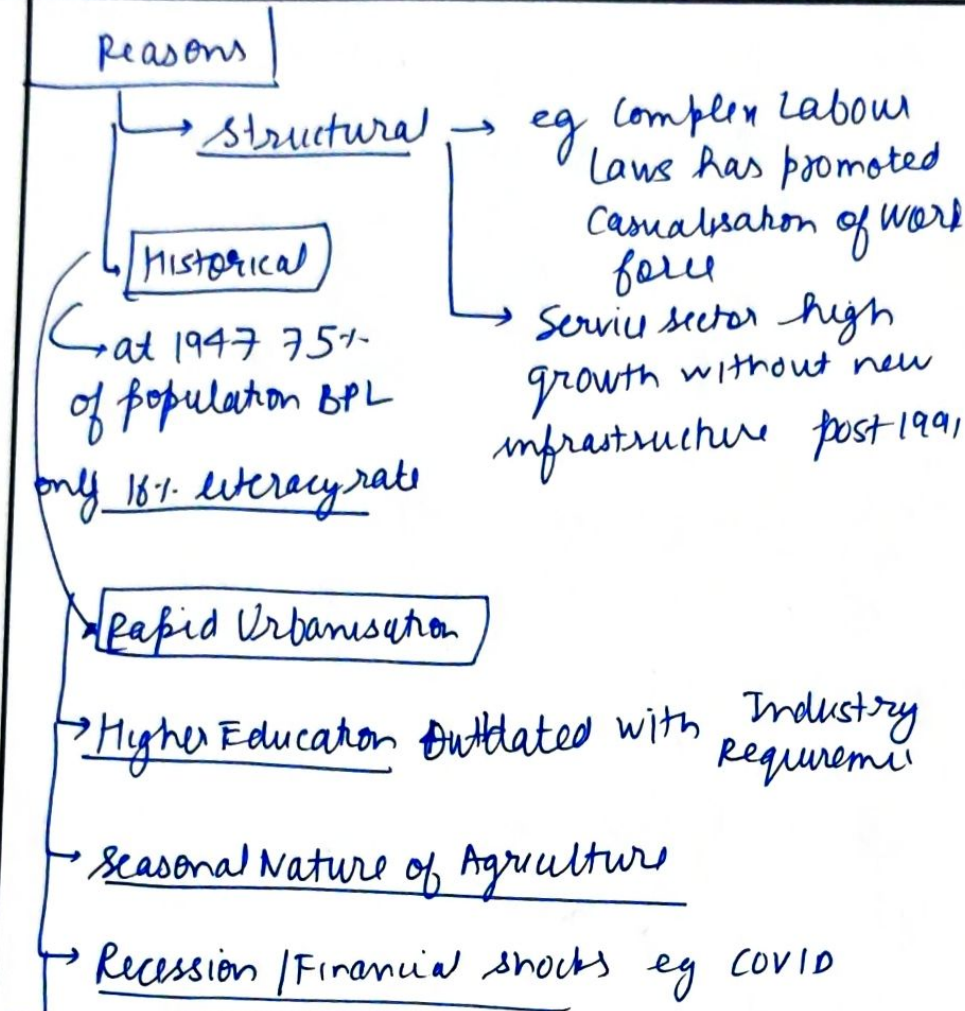 Reasons
Structural → eg Complex Labour
Laws has promoted
Casualisation of Work
force
Service sector high
growth without new
infrastructure post 1991
Historical
at 1947 75%
of population BPL
only 18% literacy rate
Rapid Urbanisation
Higher Education Outdated with Industry
Seasonal Nature of Agriculture
Recession / Financial shocks eg COVID